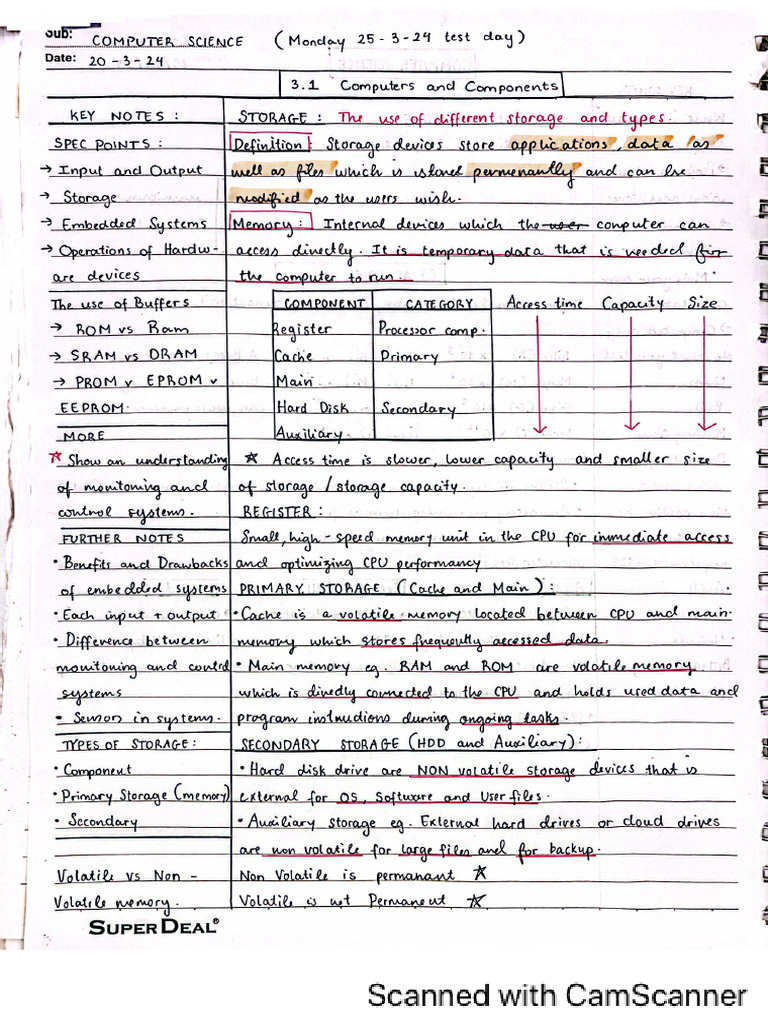 Sub: COMPUTER SCIENCE (Monday 25-3-24 test day)
Date: 20-3-24
3.1 Computers and Components
KEY NOTES :
SPEC POINTS :
→ Input and Output
→ Storage
→ Embedded Systems
→ Operations of Hardw-
are devices
The use of Buffers
→ ROM vs Ram
→ SRAM vs DRAM
→ PROM v EPROM v
EEPROM.
MORE
☆ Show an understanding
of monitoring and
control systems.
FURTHER NOTES
• Benefits and Drawbacks
of embedded systems
• Each input + output
• Difference between
monitoring and control
systems
• Sensors in systems.
TYPES OF STORAGE :
• Component
• Primary Storage (memory)
• Secondary
Volatile vs Non -
Volatile memory.
STORAGE : The use of different storage and types.
Definition : Storage devices store applications, data as
well as files which is stored permenantly and can be
modified as the users wish.
Memory : Internal devices which the user computer can
access directly. It is temporary data that is needed for
the computer to run.
COMPONENT CATEGORY Access time Capacity Size
Register Processor comp.
Cache Primary
Main
Hard Disk Secondary
Auxiliary
☆ Access time is slower, lower capacity and smaller size
of storage / storage capacity.
REGISTER :
Small, high-speed memory unit in the CPU for immediate access
and optimizing CPU performancy
PRIMARY STORAGE (Cache and Main) :
• Cache is a volatile memory located between CPU and main.
memory which stores frequently accessed data.
• Main memory eg. RAM and ROM are volatile memory
which is directly connected to the CPU and holds used data and
program instructions during ongoing tasks.
SECONDARY STORAGE (HDD and Auxiliary) :
• Hard disk drive are NON volatile storage devices that is
external for OS, Software and User files.
• Auxiliary storage eg. External hard drives or cloud drives
are non volatile for large files and for backup.
Non Volatile is permanant ☆
Volatile is not Permanent ☆
SUPERDEAL®
Scanned with CamScanner